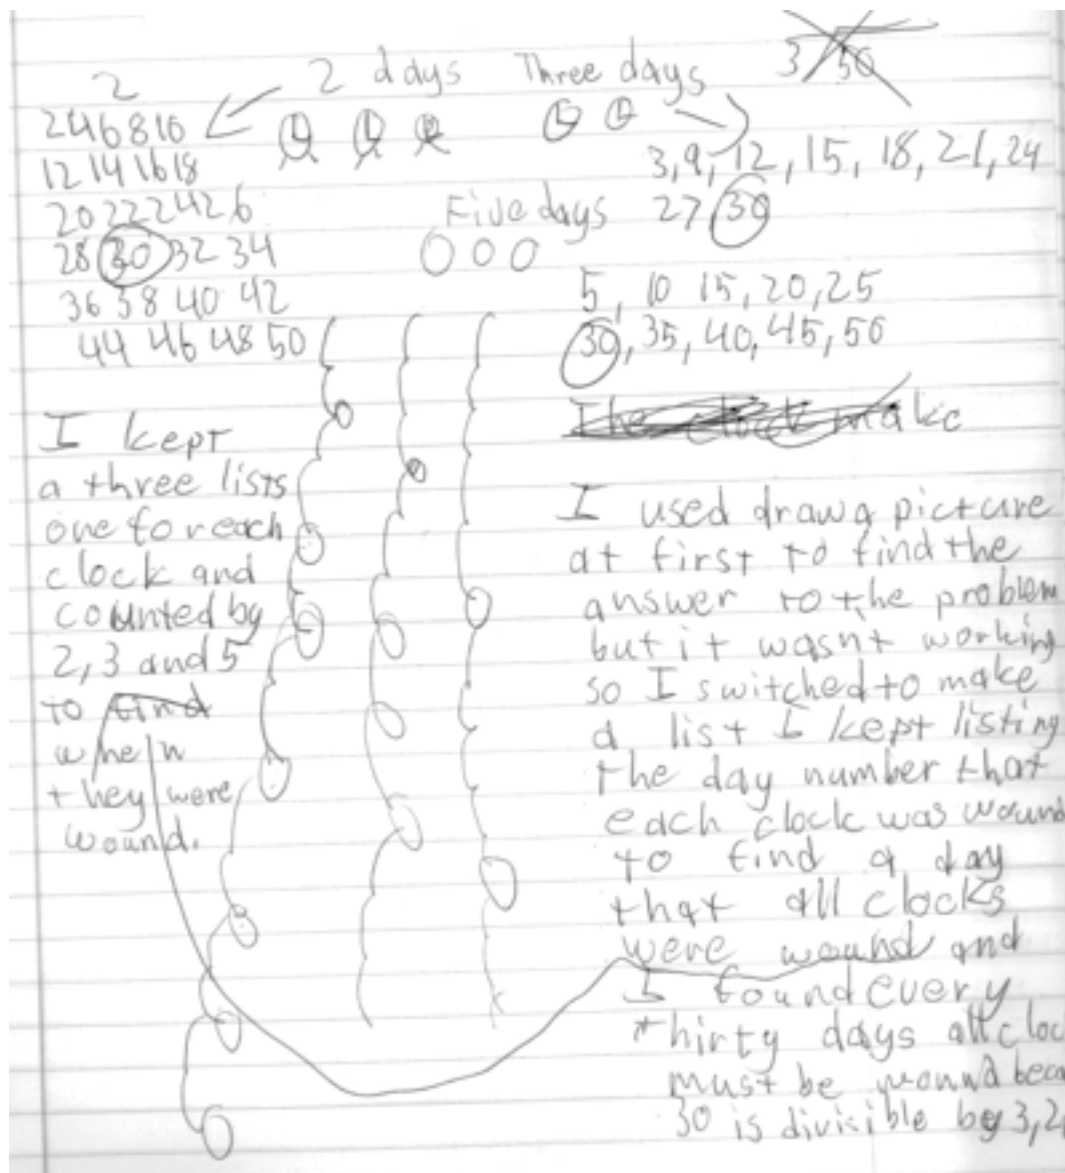 3 50
2 days Three days
2
2 4 6 8 10
12 14 16 18
20 22 24 26
28 30 32 34
36 38 40 42
44 46 48 50
3, 9, 12, 15, 18, 21, 24
27 30
Five days
5, 10 15, 20, 25
30, 35, 40, 45, 50
I kept
a three lists
one for each
clock and
counted by
2, 3 and 5
to find
when
they were
wound.
The clock make
I used draw a picture
at first to find the
answer to the problem
but it wasnt working
so I switched to make
a list I kept listing
the day number that
each clock was wound
to find a day
that all clocks
were wound and
I found every
thirty days all cloc
must be wound beca
30 is divisible by 3, 2